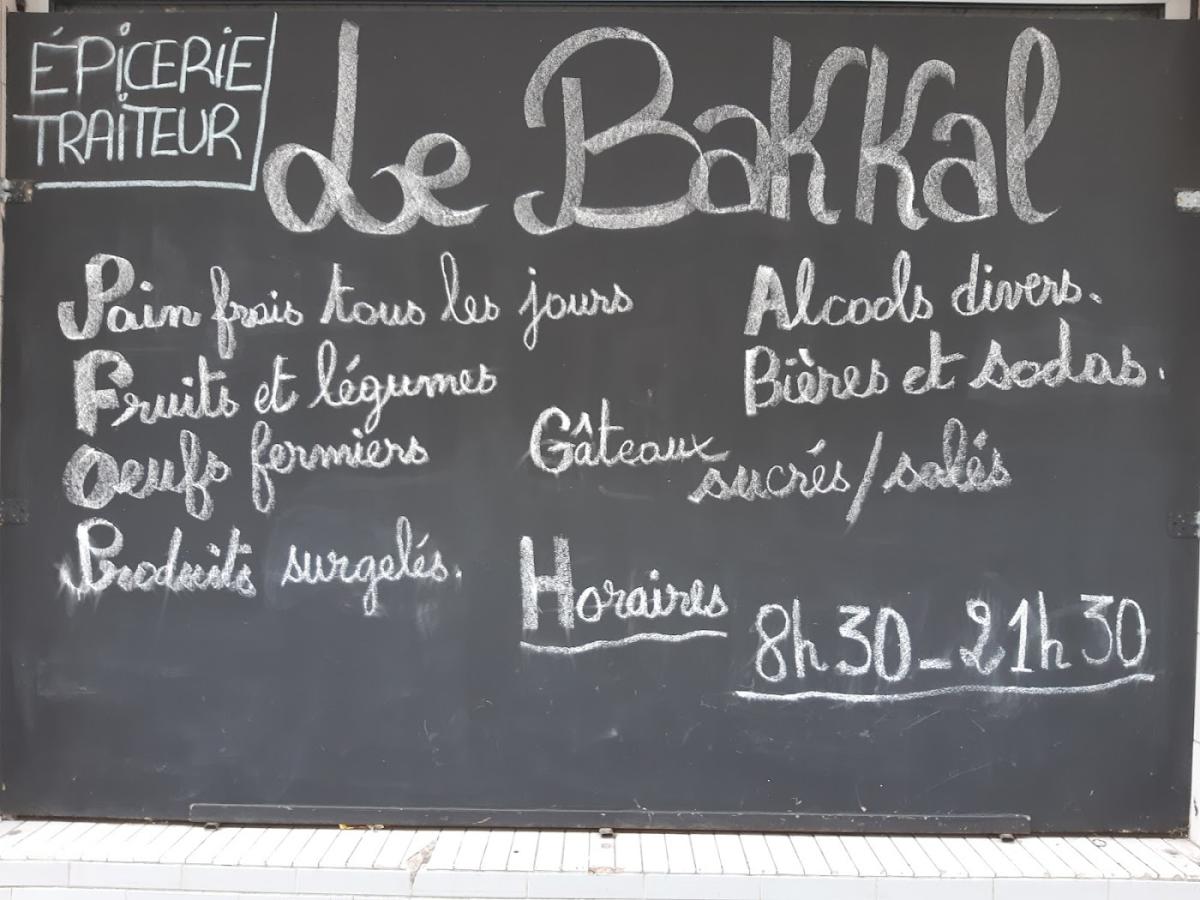 ÉPICERIE
TRAITEUR
Le Bakkal
Pain frais tous les jours
Fruits et légumes
Oeufs fermiers
Produits surgelés.
Alcools divers.
Bières et sodas.
Gâteaux
sucrés/salés
Horaires
8h30-21h30